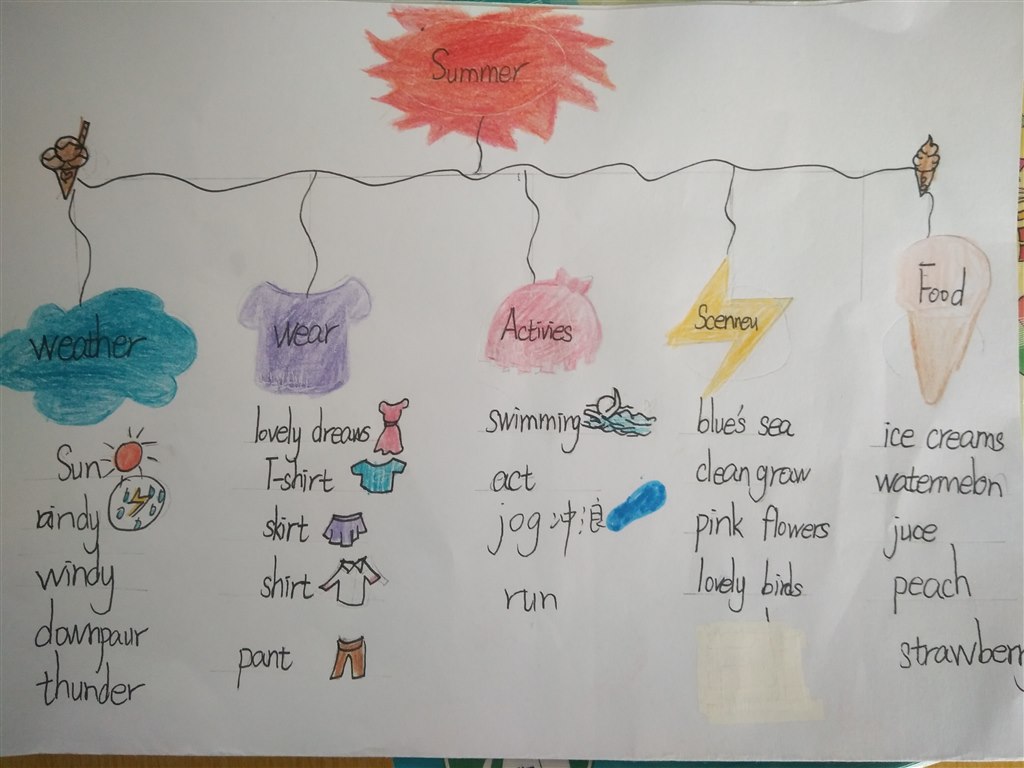 Summer
weather
Sun
raindy
windy
downpaur
thunder
Wear
lovely dreaws
T-shirt
skirt
shirt
pant
Activies
swimming
act
jog 冲浪
run
Scenneu
blue's sea
clean graw
pink flowers
lovely birds
Food
ice creams
watermelon
juce
peach
strawberry